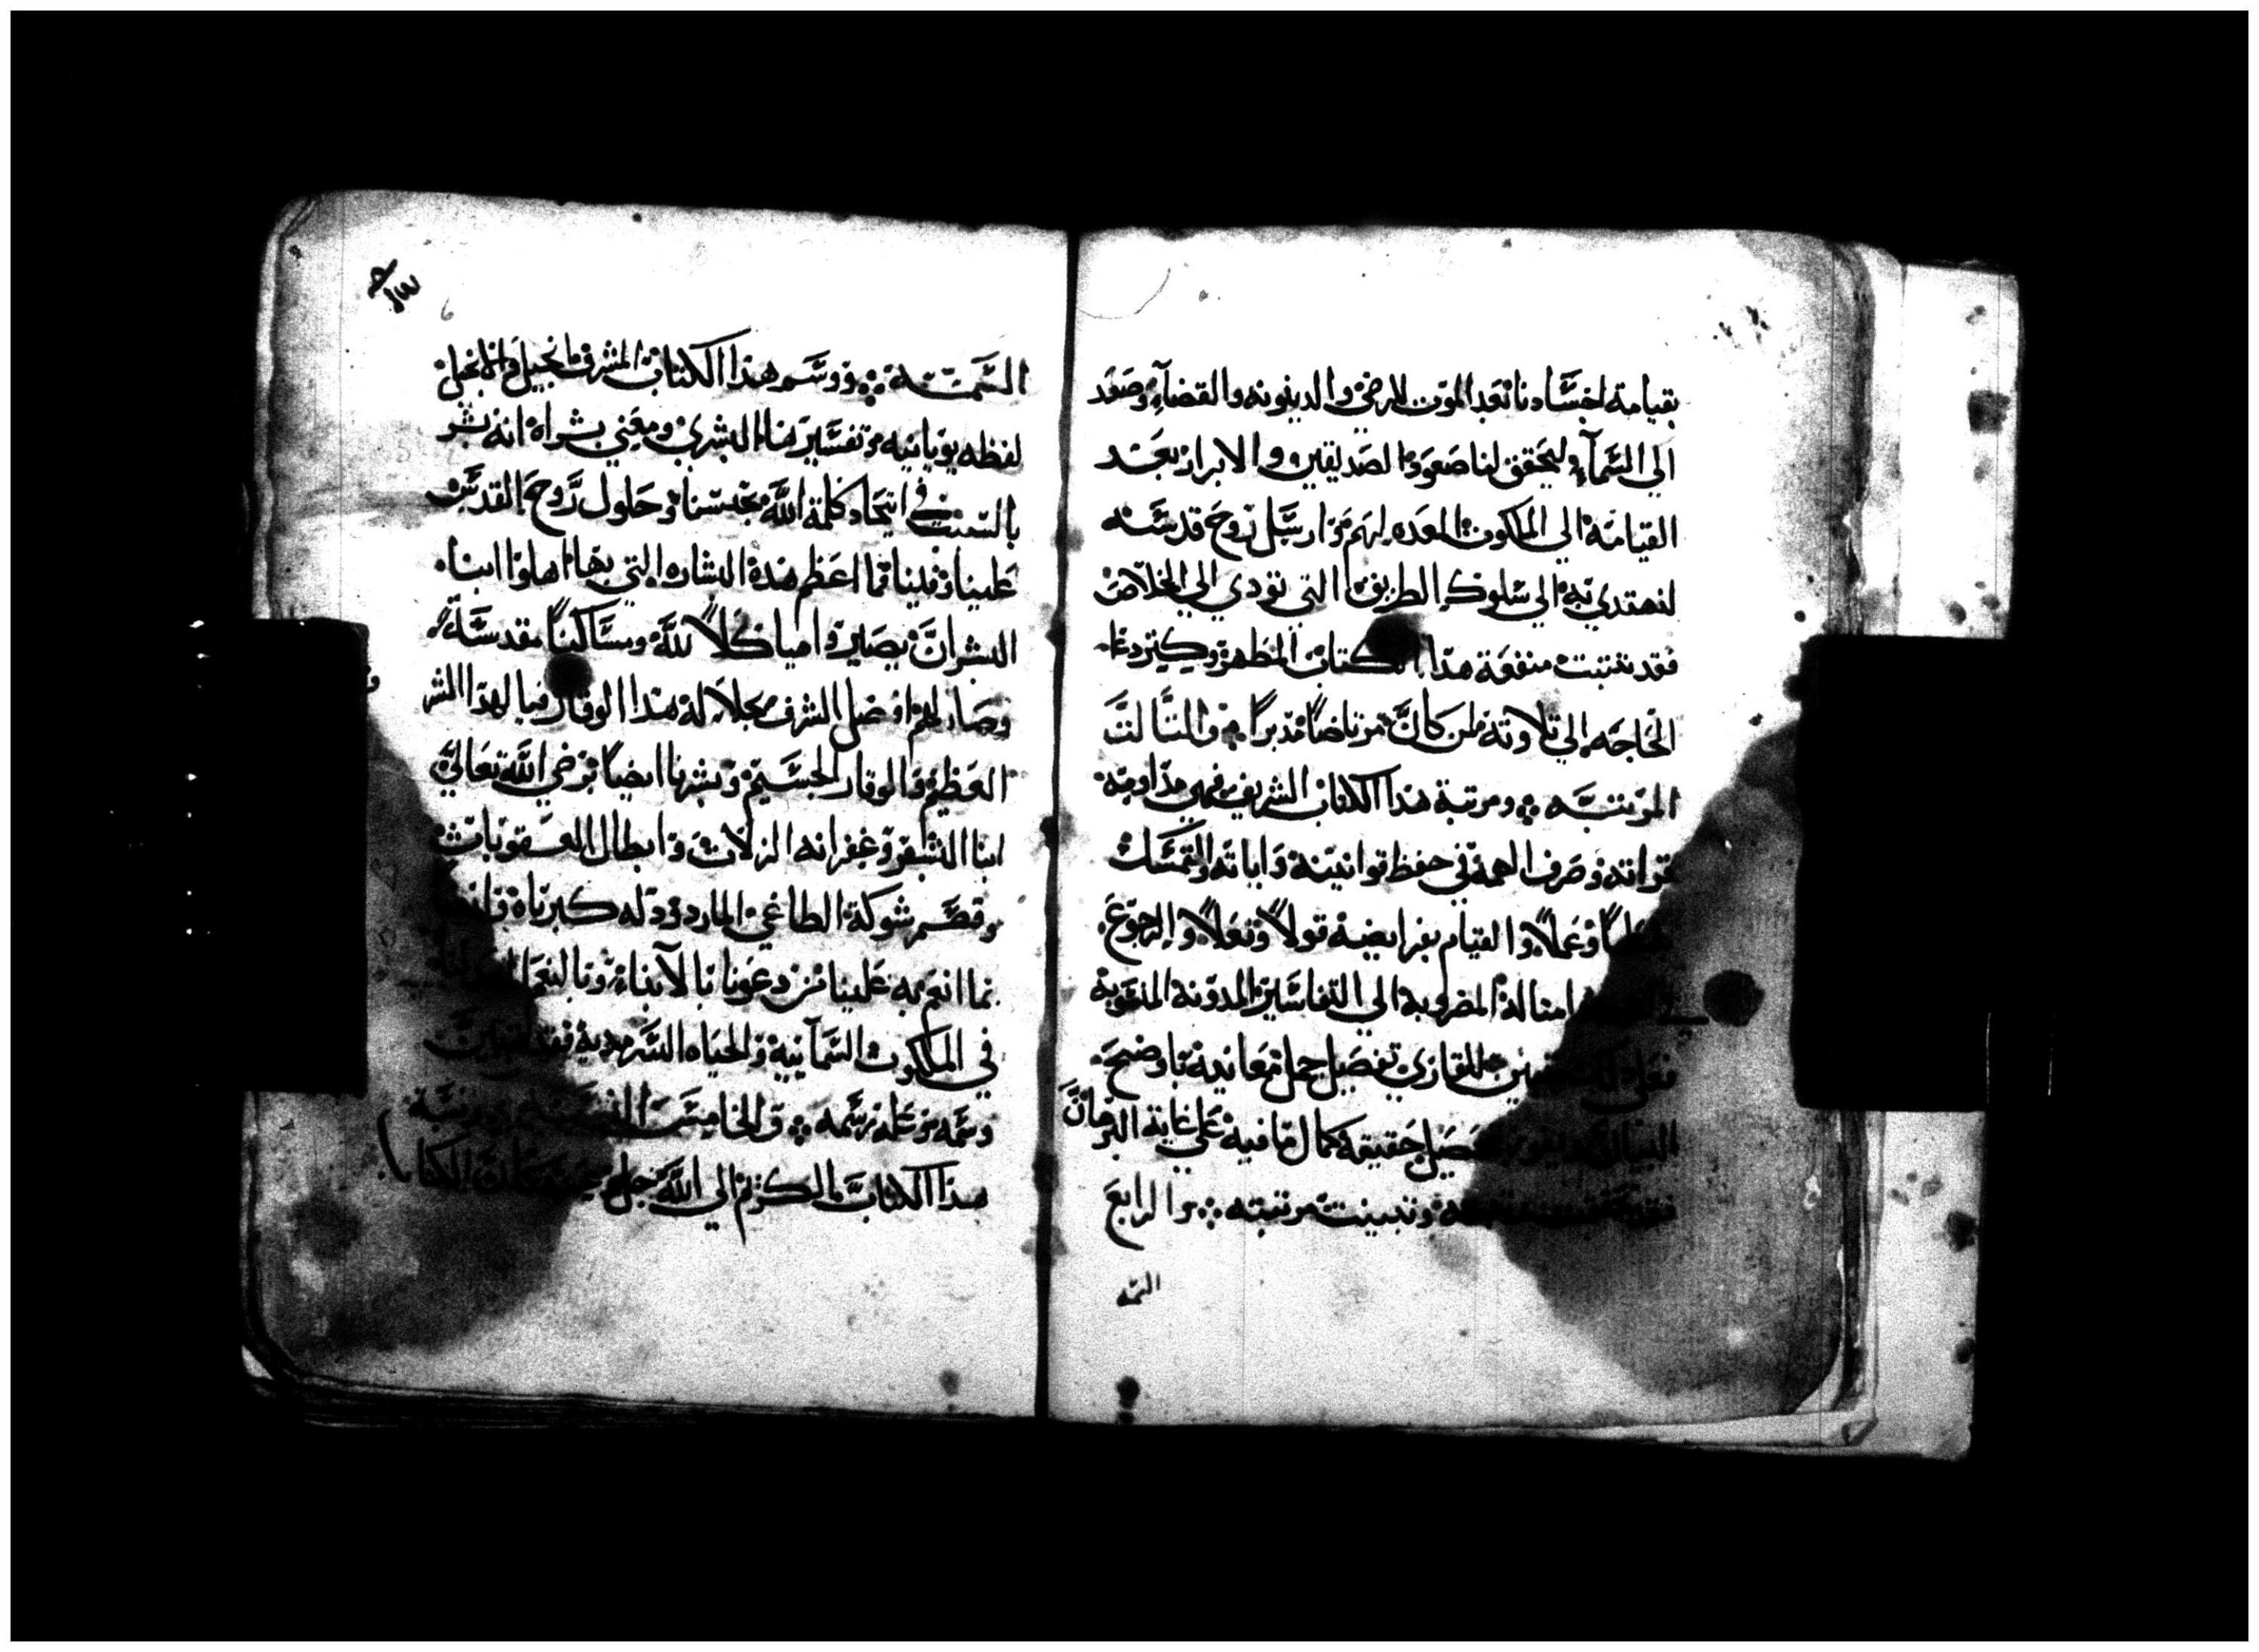 بقيامة اجسادنا بعد الموت الارضي والدينونه والقضاء وصعد
الي السماء ليحقق لنا صعود الصديقين والابرار بعد
القيامة الي الملكوت المعده لهم وارسل روح قدسه
لنهتدي به الي سلوك الطريق التي تودي الي الخلاص
فقد تثبتت منفعة هذا الكتاب المطهر وكيز دعا
الحاجه الي تلاوته لمن كان مرتاضا مدبرا والثالث
المرتبه ومرتبة هذا الكتاب الشريف فهي مداومة
قراته وصرف الهمه في حفظ قوانينه واياته والتمسك
وعملا والقيام بفرايضه قولا وفعلا والرجوع
في امثاله المضروبة الي التفاسير المدونة المنعوبة
للقاري تفصيل جمل معانيه باوضح
البيان حقيقة كمال ما فيه علي غاية البرهان
فقد وتبينت مرتبته والرابع
السمه
السمة ووسم هذا الكتاب المشرف انجيل والانجيل
لفظه يونانيه وتفسيرها البشري ومعني بشراه انه بشر
بالسنن في اتحاد كلمة الله بجنسنا وحلول روح القدس
علينا وفينا فما اعظم هذه البشاره التي بها اهلوا ابناء
البشر ان يصيروا اهيا كلا لله ومساكنا مقدسة له
وصار لهم افضل الشرف بجلاله هذا الوقار فيا لهذا الشر
العظيم والوقار الجسيم وبشرنا ايضا برضي الله تعالي
ابنا البشر وغفرانه الزلات وابطال العقوبات
وقصم شوكة الطاغي المارد وذله كبرياه
بما انعم به علينا من دعونا بالابناء
في الملكوت السمايية والحياه السرمدية فقد
وسمه من علم رسمه والخامسة
هذا الكتاب بالكرم الي الله جل الكتاب